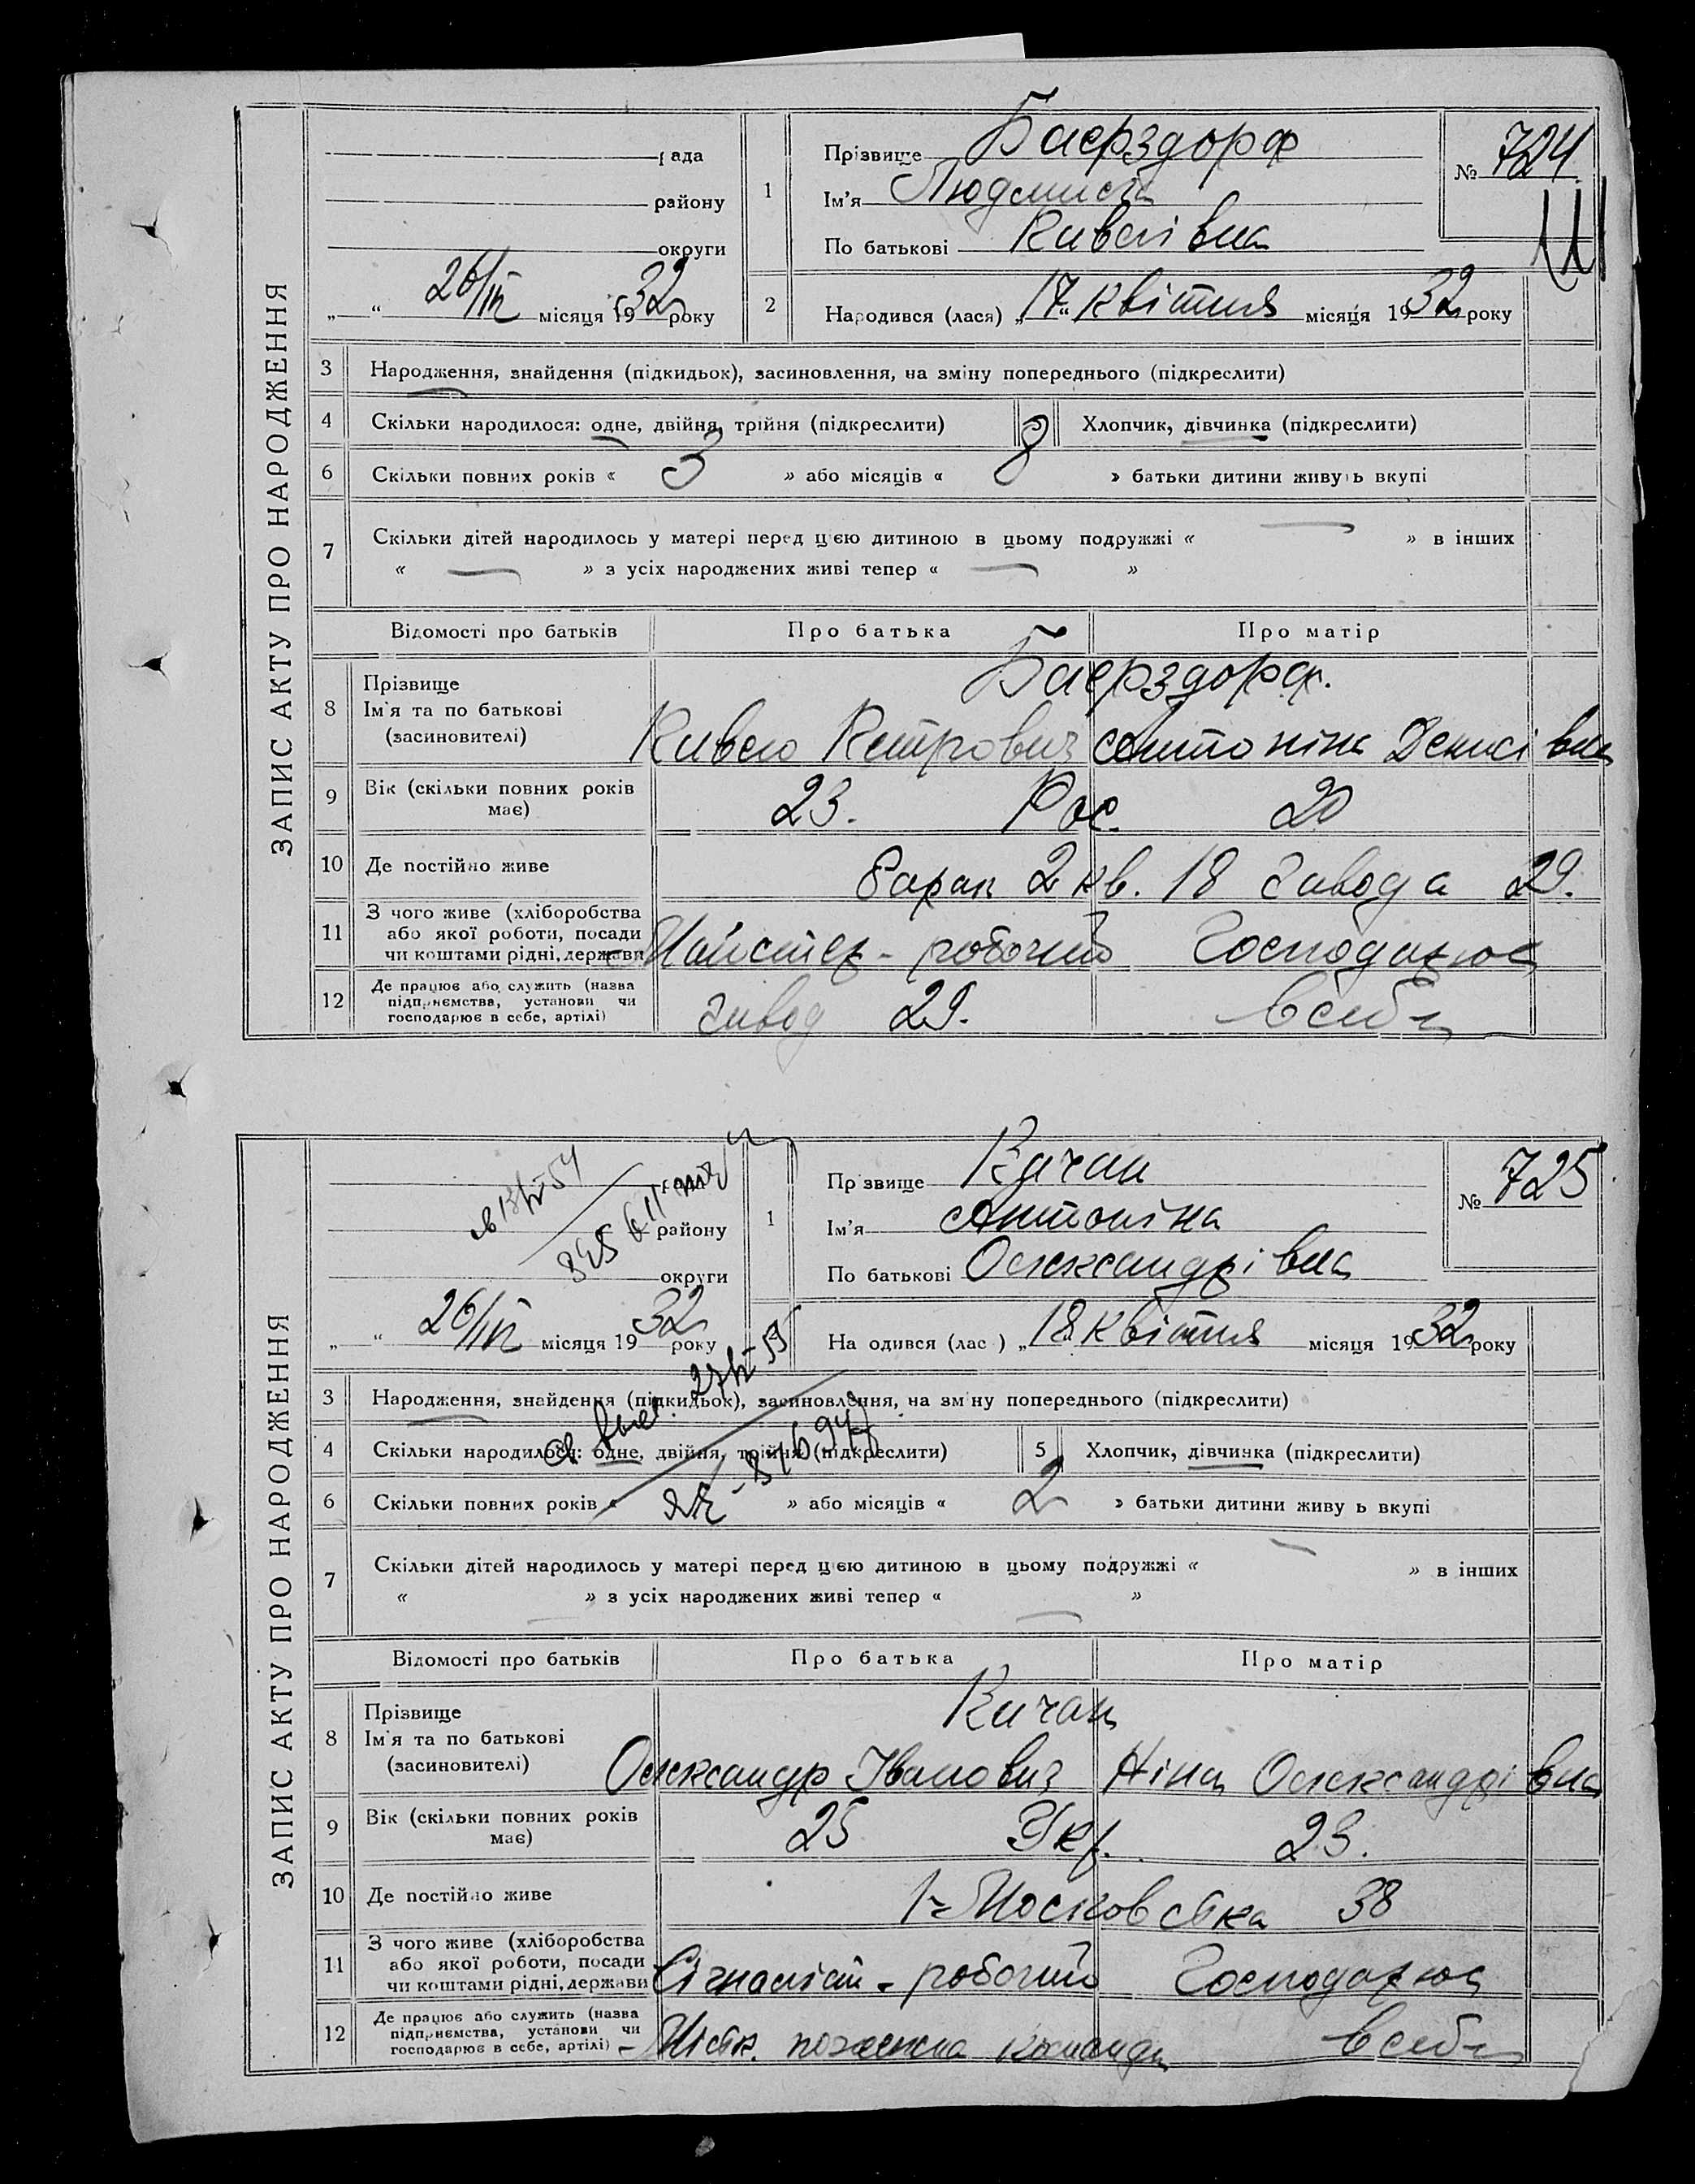 ЗАПИС АКТУ ПРО НАРОДЖЕННЯ
рада
району
округи
„ “ 26/IV місяця 1932 року
1
Прізвище Баерздорф
Ім'я Людмила
По батькові
№ 724.
2
Народився (лася) „17“ квітня місяця 1932 року
3 Народження, знайдення (підкидьок), засиновлення, на зміну попереднього (підкреслити)
4 Скільки народилося: одне, двійня, трійня (підкреслити) Хлопчик, дівчинка (підкреслити)
6 Скільки повних років « 3 » або місяців « 8 » батьки дитини живуть вкупі
7 Скільки дітей народилось у матері перед цією дитиною в цьому подружжі « — » в інших
« — » з усіх народжених живі тепер « — »
Відомості про батьків Про батька Про матір
8 Прізвище
Ім'я та по батькові
(засиновителі)
Баерздорф.
Петрович Антоніна Денисівна
9 Вік (скільки повних років має) 23. Рос. 20
10 Де постійно живе барак 2 кв. 18 завода 29.
11 З чого живе (хліборобства
або якої роботи, посади
чи коштами рідні, держави
Майстер - робочий Господарює
12 Де працює або служить (назва
підприємства, установи чи
господарює в себе, артілі)
завод 29. в себе
ЗАПИС АКТУ ПРО НАРОДЖЕННЯ
району
округи
„ “ 26/IV місяця 1932 року
1
Прізвище Качан
Ім'я Антоніна
По батькові Олександрівна
№ 725
На одився (лас ) „18 квітня місяця 1932 року
3 Народження, знайдення (підкидьок), засиновлення, на зміну попереднього (підкреслити)
4 Скільки народилося: одне, двійня, трійня (підкреслити) 5 Хлопчик, дівчинка (підкреслити)
6 Скільки повних років « » або місяців « 2 » батьки дитини живу ь вкупі
7 Скільки дітей народилось у матері перед цією дитиною в цьому подружжі « — » в інших
« — » з усіх народжених живі тепер « — »
Відомості про батьків Про батька Про матір
8 Прізвище
Ім'я та по батькові
(засиновителі)
Качан
Олександр Іванович Ніна Олександрівна
9 Вік (скільки повних років має) 25 Укр. 23.
10 Де постійно живе Московська 38
11 З чого живе (хліборобства
або якої роботи, посади
чи коштами рідні, держави
Сігналіст - робочий Господарює
12 Де працює або служить (назва
підприємства, установи чи
господарює в себе, артілі)
Міськ. пожежна команда в себе